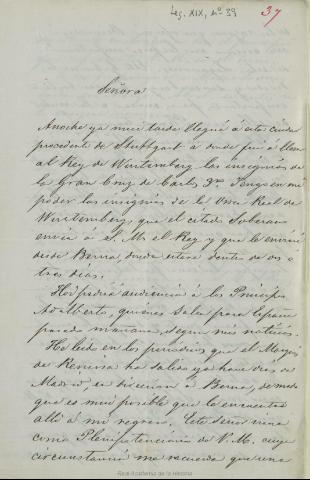 Leg. XIX, nº 39
37
Señora
Anoche ya muy tarde llegué á esta ciudad
procedente de Stuttgart á donde fui á llevar
al Rey de Wurtemberg las insignias de
la Gran Cruz de Carlos 3º. Tengo en mi
poder las insignias de la Real de
Wurtemberg, que el citado Soberano
envia á S. M. el Rey y que le enviaré
desde Berna, donde estaré dentro de dos ó
tres dias.
Hoy pediré audiencia á los Principes
Adalberto, quienes salen para España
pasado mañana, segun mis noticias.
He leido en los periodicos que el Marqués
de ha salido ya hace dias de
Madrid, en direccion á Berna, de modo
que es muy posible que le encuentre
allí á mi regreso. Este señor viene
como Plenipotenciario de V. M. cuya
circunstancia me recuerda que una
Real Academia de la Historia